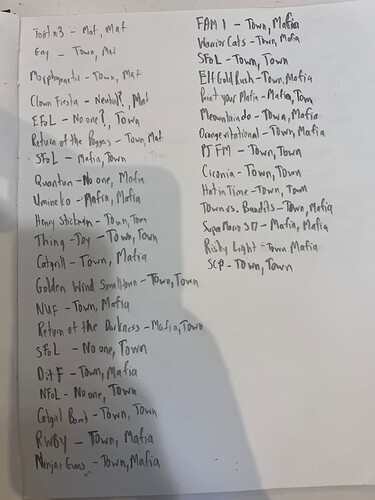 Fortn3 - Maf, Maf
Gay - Town, Maf
Morphogenetic - Town, Maf
Clown Fiesta - Neutral?, Maf
EFoL - No one?, Town
Return of the Poggers - Town, Maf
SFoL - Mafia, Town
Quantum - No one, Mafia
Umineko - Mafia, Mafia
Henry Stickmin - Town, Town
Thing - Toy - Town, Town
Catgirll - Town, Mafia
Golden Wind Smalltown - Town, Town
NUF - Town, Mafia
Return of the Darkness - Mafia, Town
SFoL - No one, Town
DitF - Town, Mafia
NFoL - No one, Town
Catgirl Bomb - Town, Town
RWBY - Town, Mafia
Ninja + Guns - Town, Mafia
FAM 1 - Town, Mafia
Warrior Cats - Town, Mafia
SFoL - Town, Town
Elf Gold Rush - Town, Mafia
Paint your Mafia - Mafia, Town
- Town, Mafia
Orangevitational - Town, Mafia
PJ FM - Town, Town
Ciconia - Town, Town
Hat in Time - Town, Town
Town vs. Bandits - Town, Mafia
Super Mario 57 - Mafia, Mafia
Risky Light - Town, Mafia
SCP - Town, Town